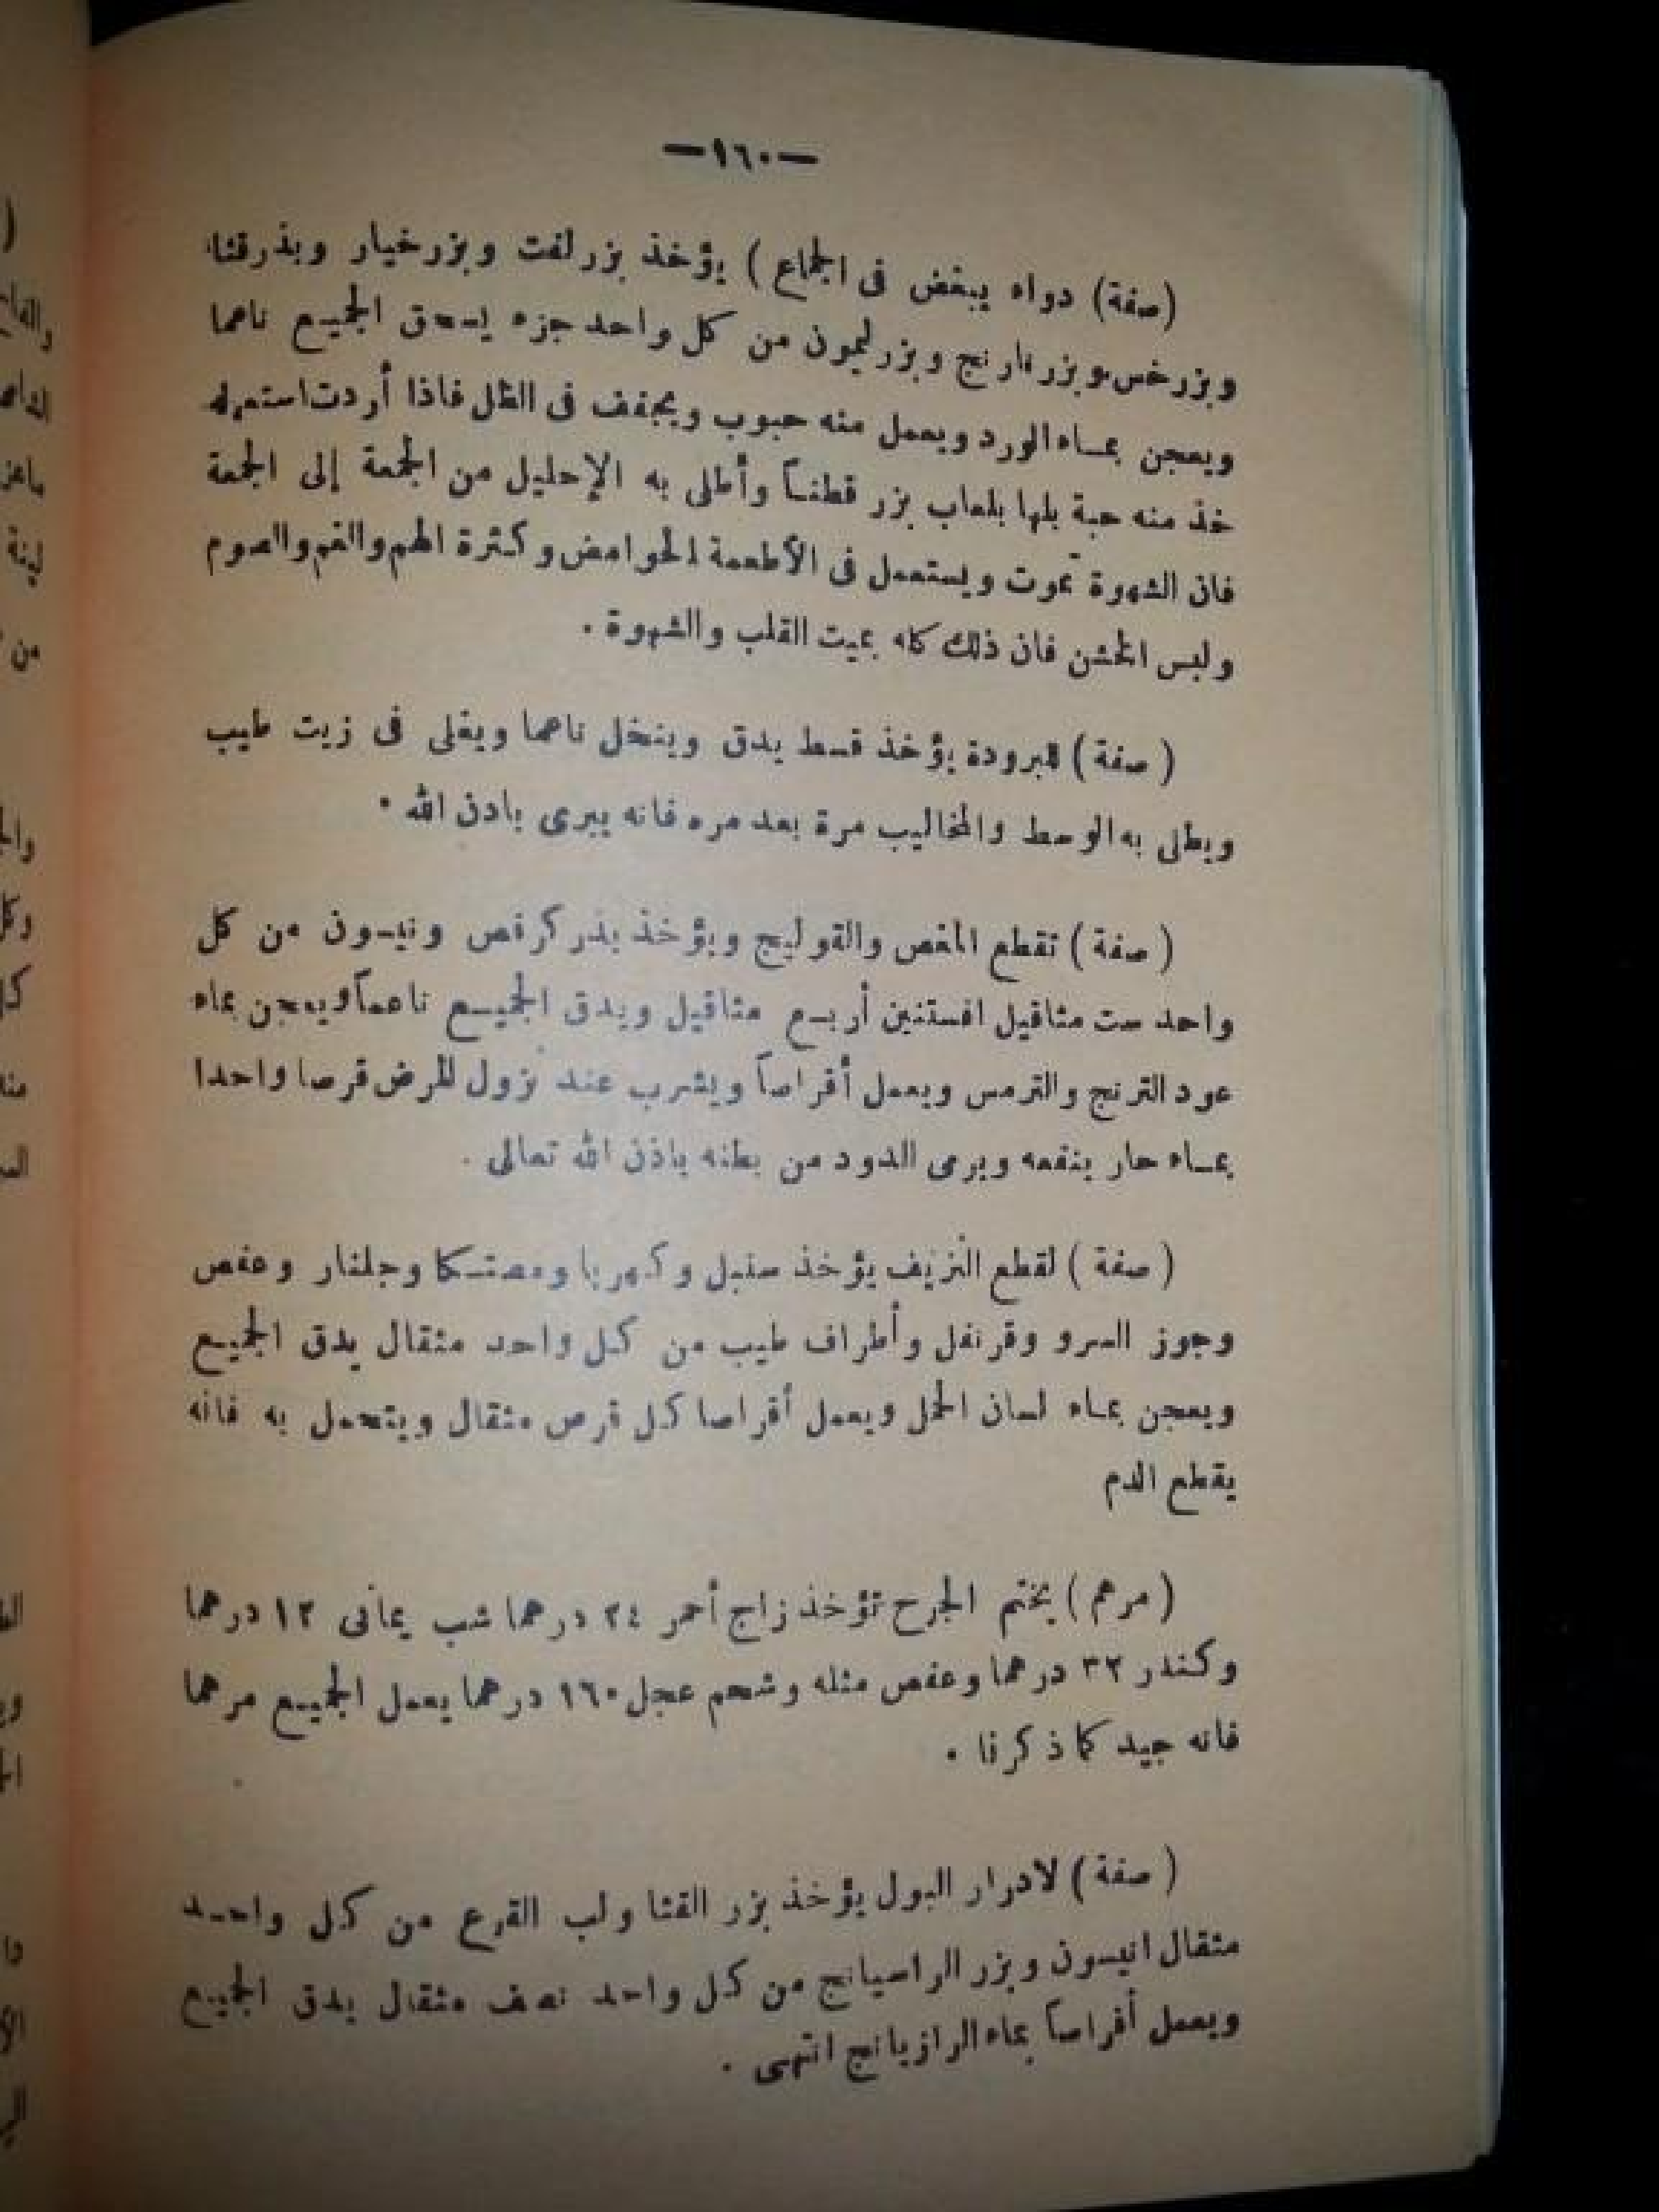 —١٦٠—
(صفة) دواء يبغض فى الجماع) يؤخذ بزر لفت وبزر خيار وبذر قثاء
وبزر خس وبزر نارنج وبزر ليمون من كل واحد جزء يسحق الجميع ناعما
ويعجن بماء الورد ويعمل منه حبوب ويجفف فى الظل فاذا أردت استعماله
خذ منه حبة بلها بلعاب بزر قطناً وأطلى به الإحليل من الجمعة إلى الجمعة
فان الشهوة تموت ويستعمل فى الأطعمة الحوامض وكثرة الهم والغم والصوم
ولبس الخشن فان ذلك كله يميت القلب والشهوة .
(صفة) للبرودة يؤخذ قسط يدق وينخل ناعما ويغلى فى زيت طيب
ويطلى به الوسط والمخاليب مرة بعد مره فانه يبرى بادن الله .
(صفة) تقطع المغص والقوليج ويؤخذ بذر كرفص ونيسون من كل
واحد ست مثاقيل افستنين أربع مثاقيل ويدق الجميع ناعماً ويعجن بماء
عود الترنج والترمس ويعمل أقراصاً ويشرب عند نزول المرض قرصا واحدا
بماء حار ينفعه ويرمى الدود من بطنه باذن الله تعالى .
(صفة) لقطع النزيف يؤخذ سنبل وكهربا ومصتكا وجلنار وعفص
وجوز السرو وقرنفل وأطراف طيب من كل واحد مثقال يدق الجميع
ويعجن بماء لسان الحمل ويعمل أقراصا كل قرص مثقال ويتحمل به فانه
يقطع الدم
(مرهم) يختم الجرح تؤخذ زاج أحمر ٢٤ درهما شب يمانى ١٢ درهما
وكندر ٣٢ درهما وعفص مثله وشحم عجل ١٦٠ درهما يعمل الجميع مرهما
فانه جيد كما ذكرنا .
(صفة) لادرار البول يؤخذ بزر القثا ولب القرع من كل واحد
مثقال انيسون وبزر الراسيانج من كل واحد نصف مثقال يدق الجميع
ويعمل أقراصاً بماء الرازيانج انتهى .